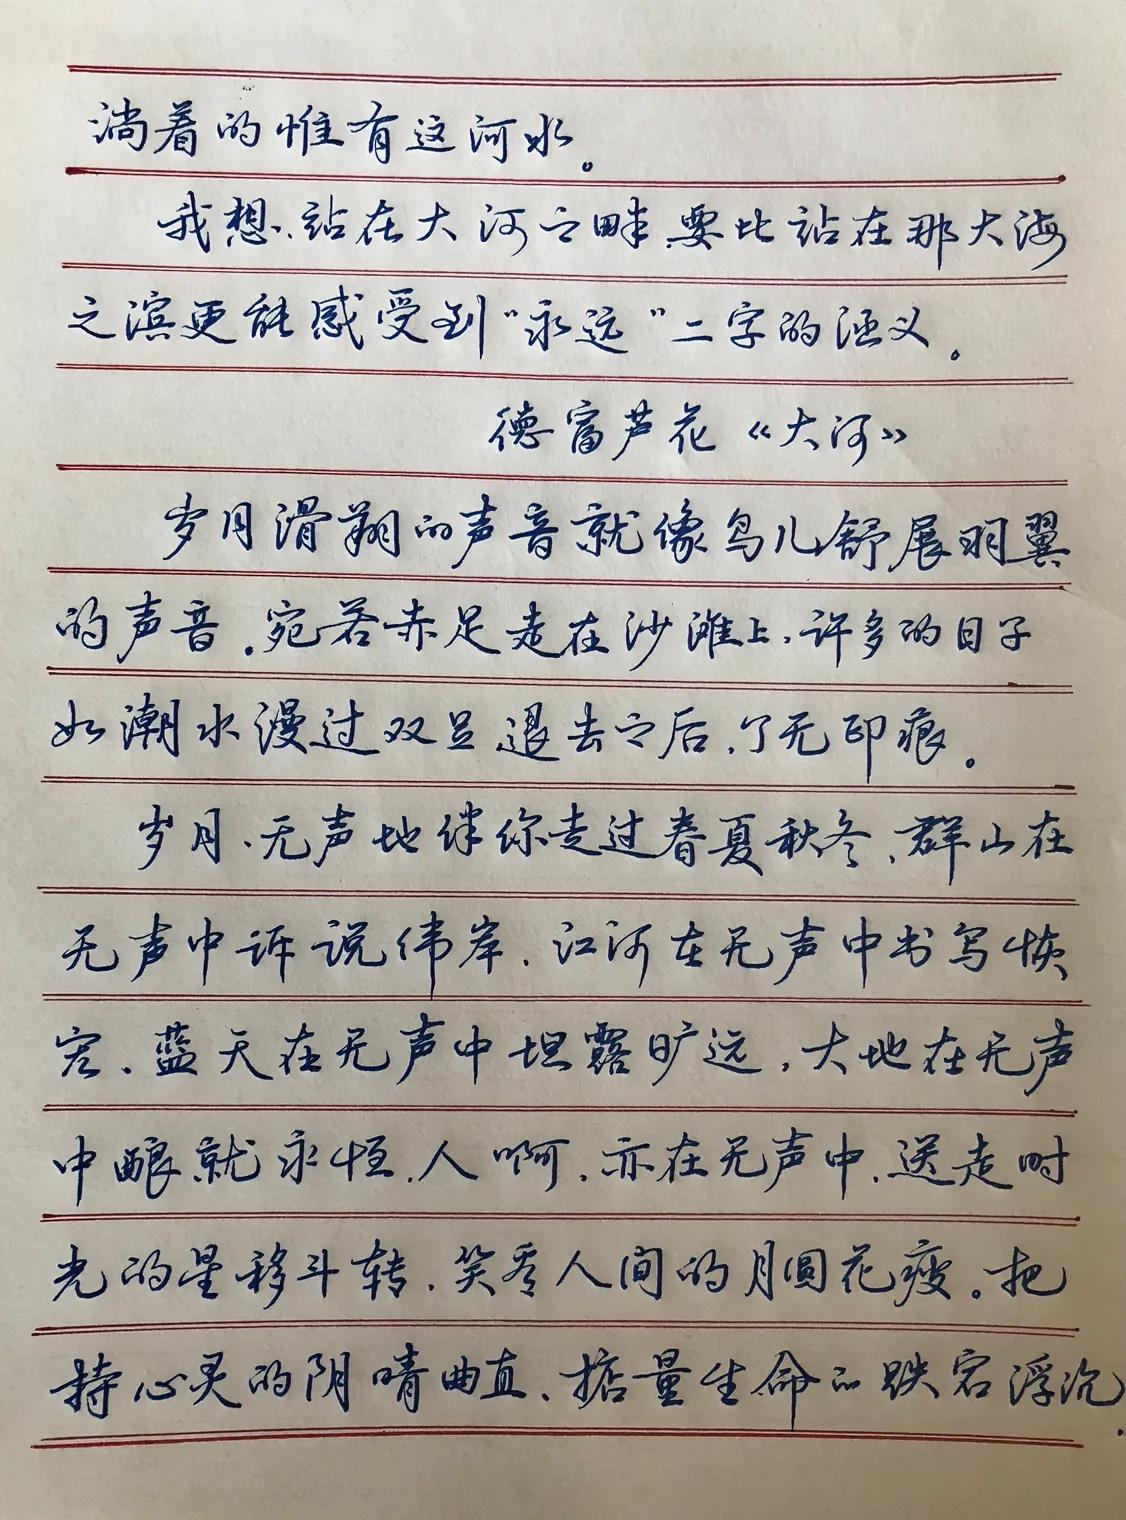 淌着的惟有这河水。
我想、站在大河之畔,要比站在那大海
之滨更能感受到“永远”二字的涵义。
德富芦花《大河》
岁月滑翔的声音就像鸟儿舒展羽翼
的声音。宛若赤足走在沙滩上,许多的日子
如潮水漫过双足退去之后,了无印痕。
岁月、无声地伴你走过春夏秋冬,群山在
无声中诉说伟岸,江河在无声中书写恢
宏,蓝天在无声中坦露旷远,大地在无声
中酿就永恒,人啊,亦在无声中,送走时
光的星移斗转,笑看人间的月圆花瘦。把
持心灵的阴晴曲直、掂量生命的跌宕浮沉.